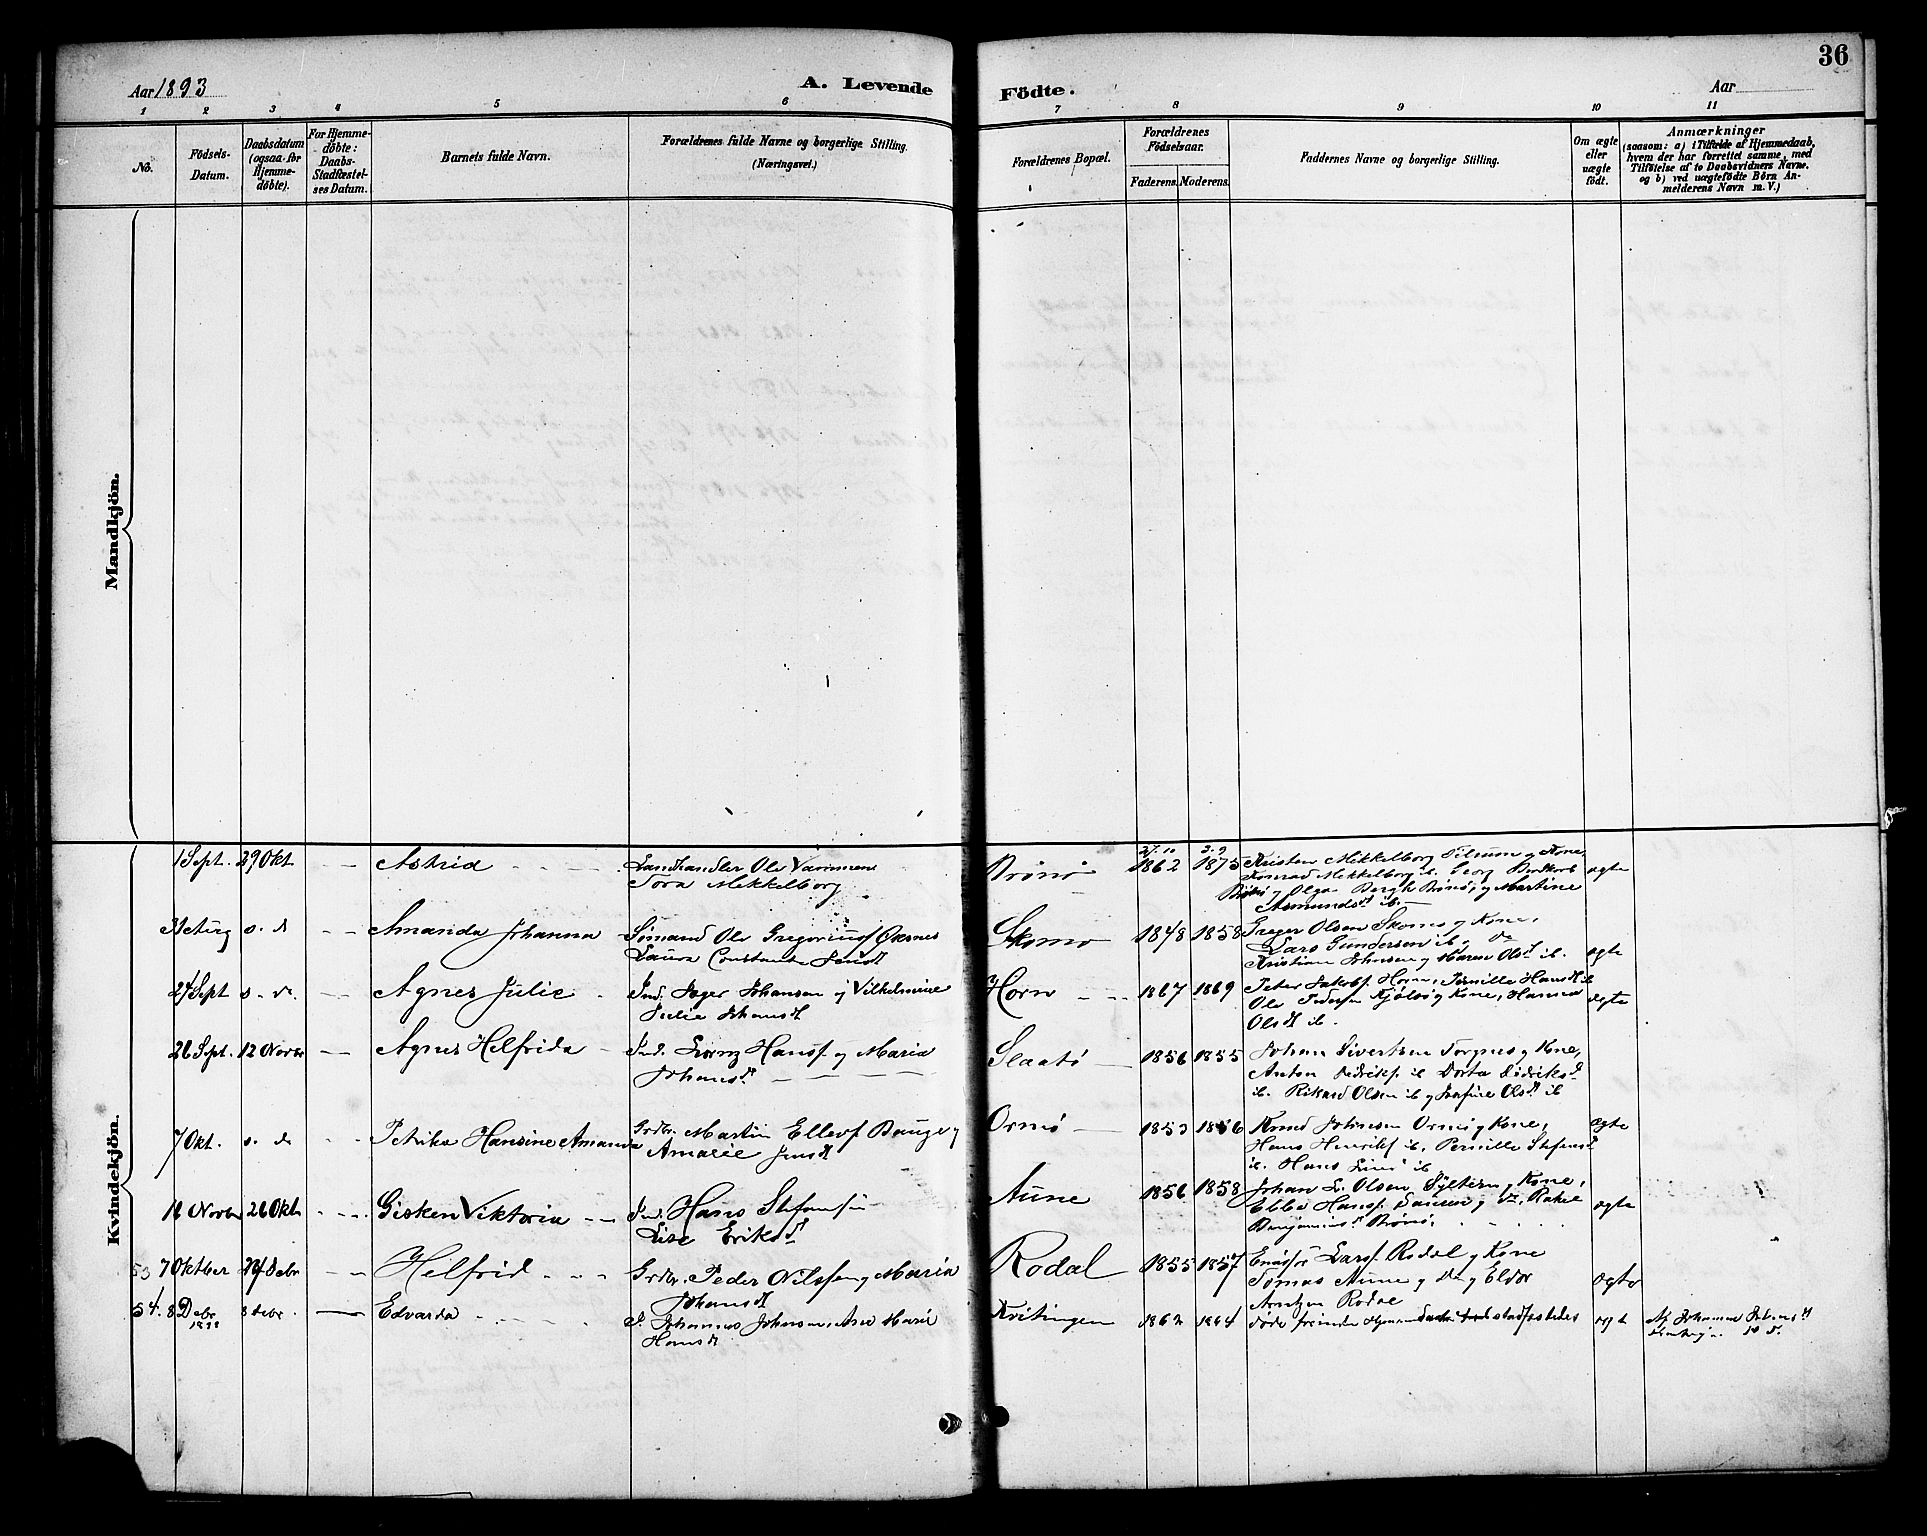 36
Aar 1893
A. Levende Födte.
Aar
1 2 3 4 5 6 7 8 9 10 11
No.
Födsels-Datum.
Daabsdatum (ogsaa for Hjemme-døbte).
For Hjemme-døbte: Daabs-Stadfæstel-ses Datum.
Barnets fulde Navn.
Forældrenes fulde Navne og borgerlige Stilling. (Næringsvei.)
Forældrenes Bopæl.
Forældrenes Födselsaar.
Faderens. Moderens.
Faddernes Navne og borgerlige Stilling.
Om ægte eller uægte født.
Anmærkninger
(saasom: a) i Tilfælde af Hjemmedaab, hvem der har forrettet samme, med Tilföielse af to Daabsvidners Navne, og b) ved uægtefödte Börn An-melderens Navn m. V.)
Mandkjön.
Kvindekjön.
1 Sept. 29 Okt. - - Astrid - - - Landhandler Ole Vammen
Tora Mekkelborg
Brønø 27.10 1862 3.9 1875
Kristen Mekkelborg Tilrum og Kone,
Konrad Mekkelborg ib. Georg
Brønø og Olga Bergh Brønø, og Martine
Asmundsdt ib. -
ægte
31 Aug s. d - - Amanda Johanna Sømand Ole Gregoriusf Øksnes
Laura Constanse Jensdt
Skomo 1848 1858 Greger Olsen Skomo og Kone,
Lars Gundersen ib. Do
Kristian Johnsen og Maren Olsdt ib.
ægte
24 Sept s. d. - - Agnes Julie - Ind. Jøger Johansen og Vilhelmine
Julie Johansdt
Horn - - 1867 1869 Peter Jakobsf. Horn, Pernille Hansdt ib
Ole Pedersen Kjølsø og Kone, Hanna
Olsdt ib.
ægte
26 Sept. 12 Novbr - - Agnes Helfrida - Ind. Lornz Hansf. og Maria
Johansdt - - -
Slaatø 1856 1855 Johan Sivertsen Torgnes og Kone,
Anton Fredriksf. ib Dorta Didriksdt
ib. Rikard Olsen ib og Josefine Olsdt ib
7 Okt. s. d - - Petrika Hansine Amanda Grdbr. Martin Ellevsf Bauge og
Amalie Jensdt
Ormø 1853 1856 Knud Johnsen Ormø og Kone,
Hans Henriksf ib. Pernille Stefensdt
ib. Hans ib
ægte
18 Novbr 26 Okt - - Gisken Viktoria - - Ind. Hans Stefansen
Lise Eriksdt
Aune 1856 1858 Johan L. Olsen Sylteren og Kone,
Ebbe Hansf. og
Benjaminsdt Brønø.
ægte
53 7 Oktber Debr - - Helfrid - - - Grdbr. Peder Nilssen og Maria
Johansdt
Rodal 1855 1857 Larsf. Rodal og Kone
Tomas Aune og Do og Eldor
Arntzen Rodal
ægte
54. 8 Debr 8 Debr - Edvarda - - - - I. Johannes Johnsen, Ane Marie
Hansdt
Kvitingen 1862 1864 døde forinden Hjemmedaaben stadfæstedes
ægt
Af Johanna